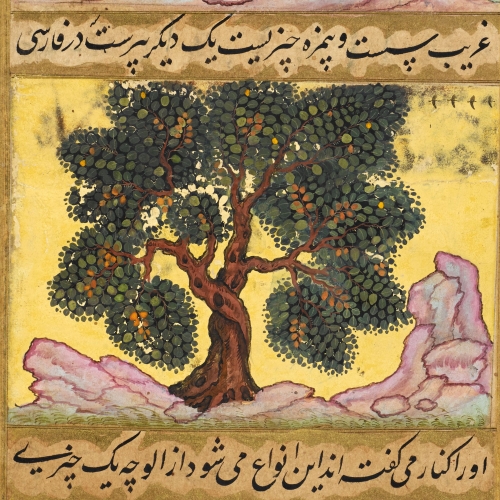 غریب سست و بیمزه چیزیست یک دیگر بیرست در فارسی
او را کنار می گفته اند این انواع می شود از الوچه یک چیزیے